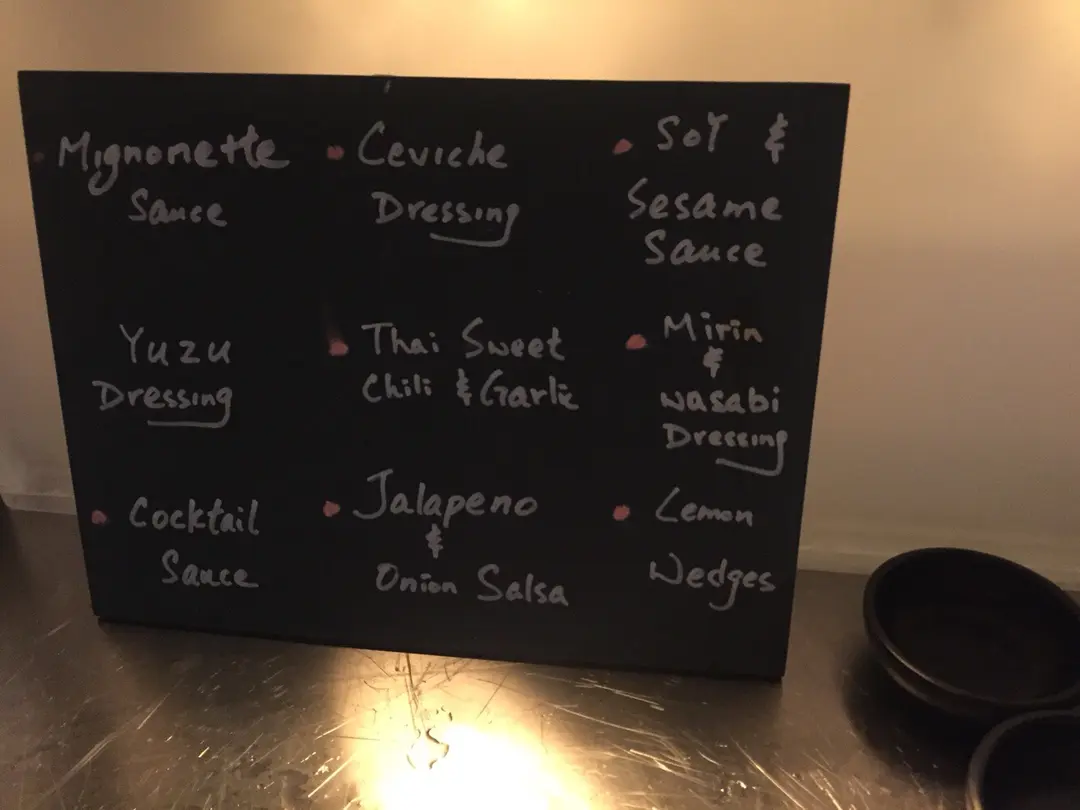 Mignonette
Sauce
Ceviche
Dressing
Soy &
Sesame
Sauce
Yuzu
Dressing
Thai Sweet
Chili & Garlic
Mirin
&
Wasabi
Dressing
Cocktail
Sauce
Jalapeno
&
Onion Salsa
Lemon
Wedges